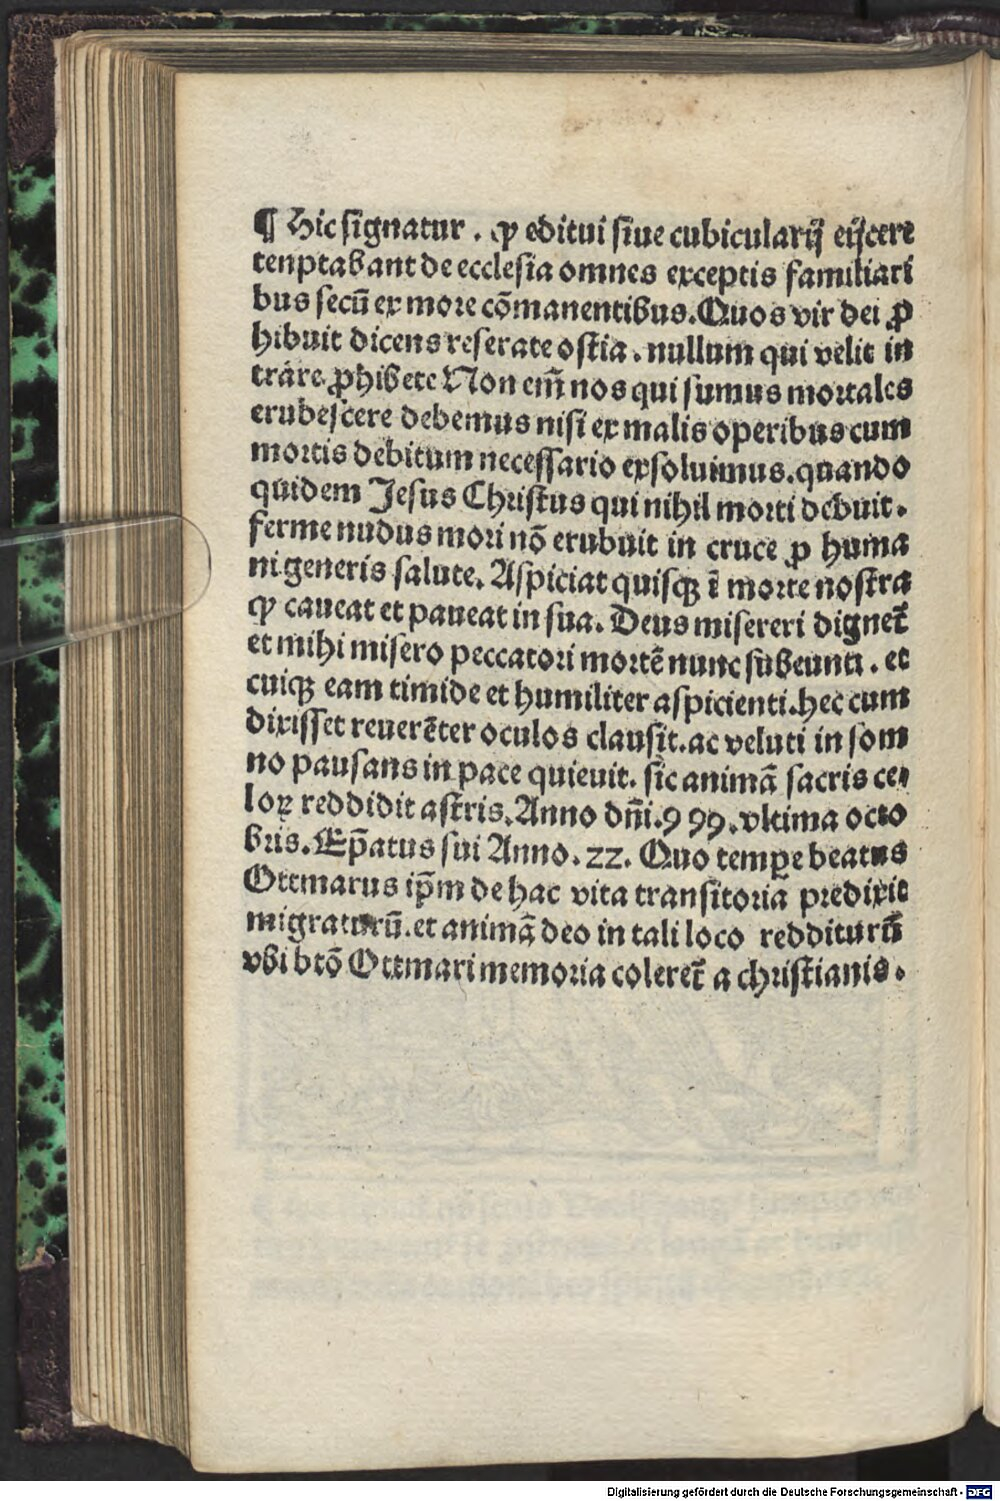 ¶ Hic signatur . ꝙ editui siue cubicularij eijcere
temptabant de ecclesia omnes exceptis familiari
bus secū ex more cōmanentibus. Quos vir dei ꝓ
hibuit dicens reserate ostia . nullum qui velit in
trare ꝓhibete Non em̄ nos qui sumus mortales
erubescere debemus nisi ex malis operibus cum
mortis debitum necessario exsoluimus. quando
quidem Jesus Christus qui nihil morti debuit .
ferme nudus mori nō erubuit in cruce ꝓ huma
ni generis salute. Aspiciat quisqꝫ ī morte nostra
ꝙ caueat et paueat in sua. Deus misereri dignet̄
et mihi misero peccatori mortē nunc subeunti . et
cuiqꝫ eam timide et humiliter aspicienti. hec cum
dixisset reuerēter oculos clausit. ac veluti in som
no pausans in pace quieuit. sic animā sacris ce⸗
loꝝ reddidit astris. Anno dn̄i. 999. vltima octo
bris. Ep̄atus sui Anno. 22. Quo temꝑe beatus
Ottmarus ip̄m de hac vita transitoria predixit
migraturū. et animā deo in tali loco redditurū
vbi btō Ottmari memoria coleret̄ a christianis .
Digitalisierung gefördert durch die Deutsche Forschungsgemeinschaft - DFG